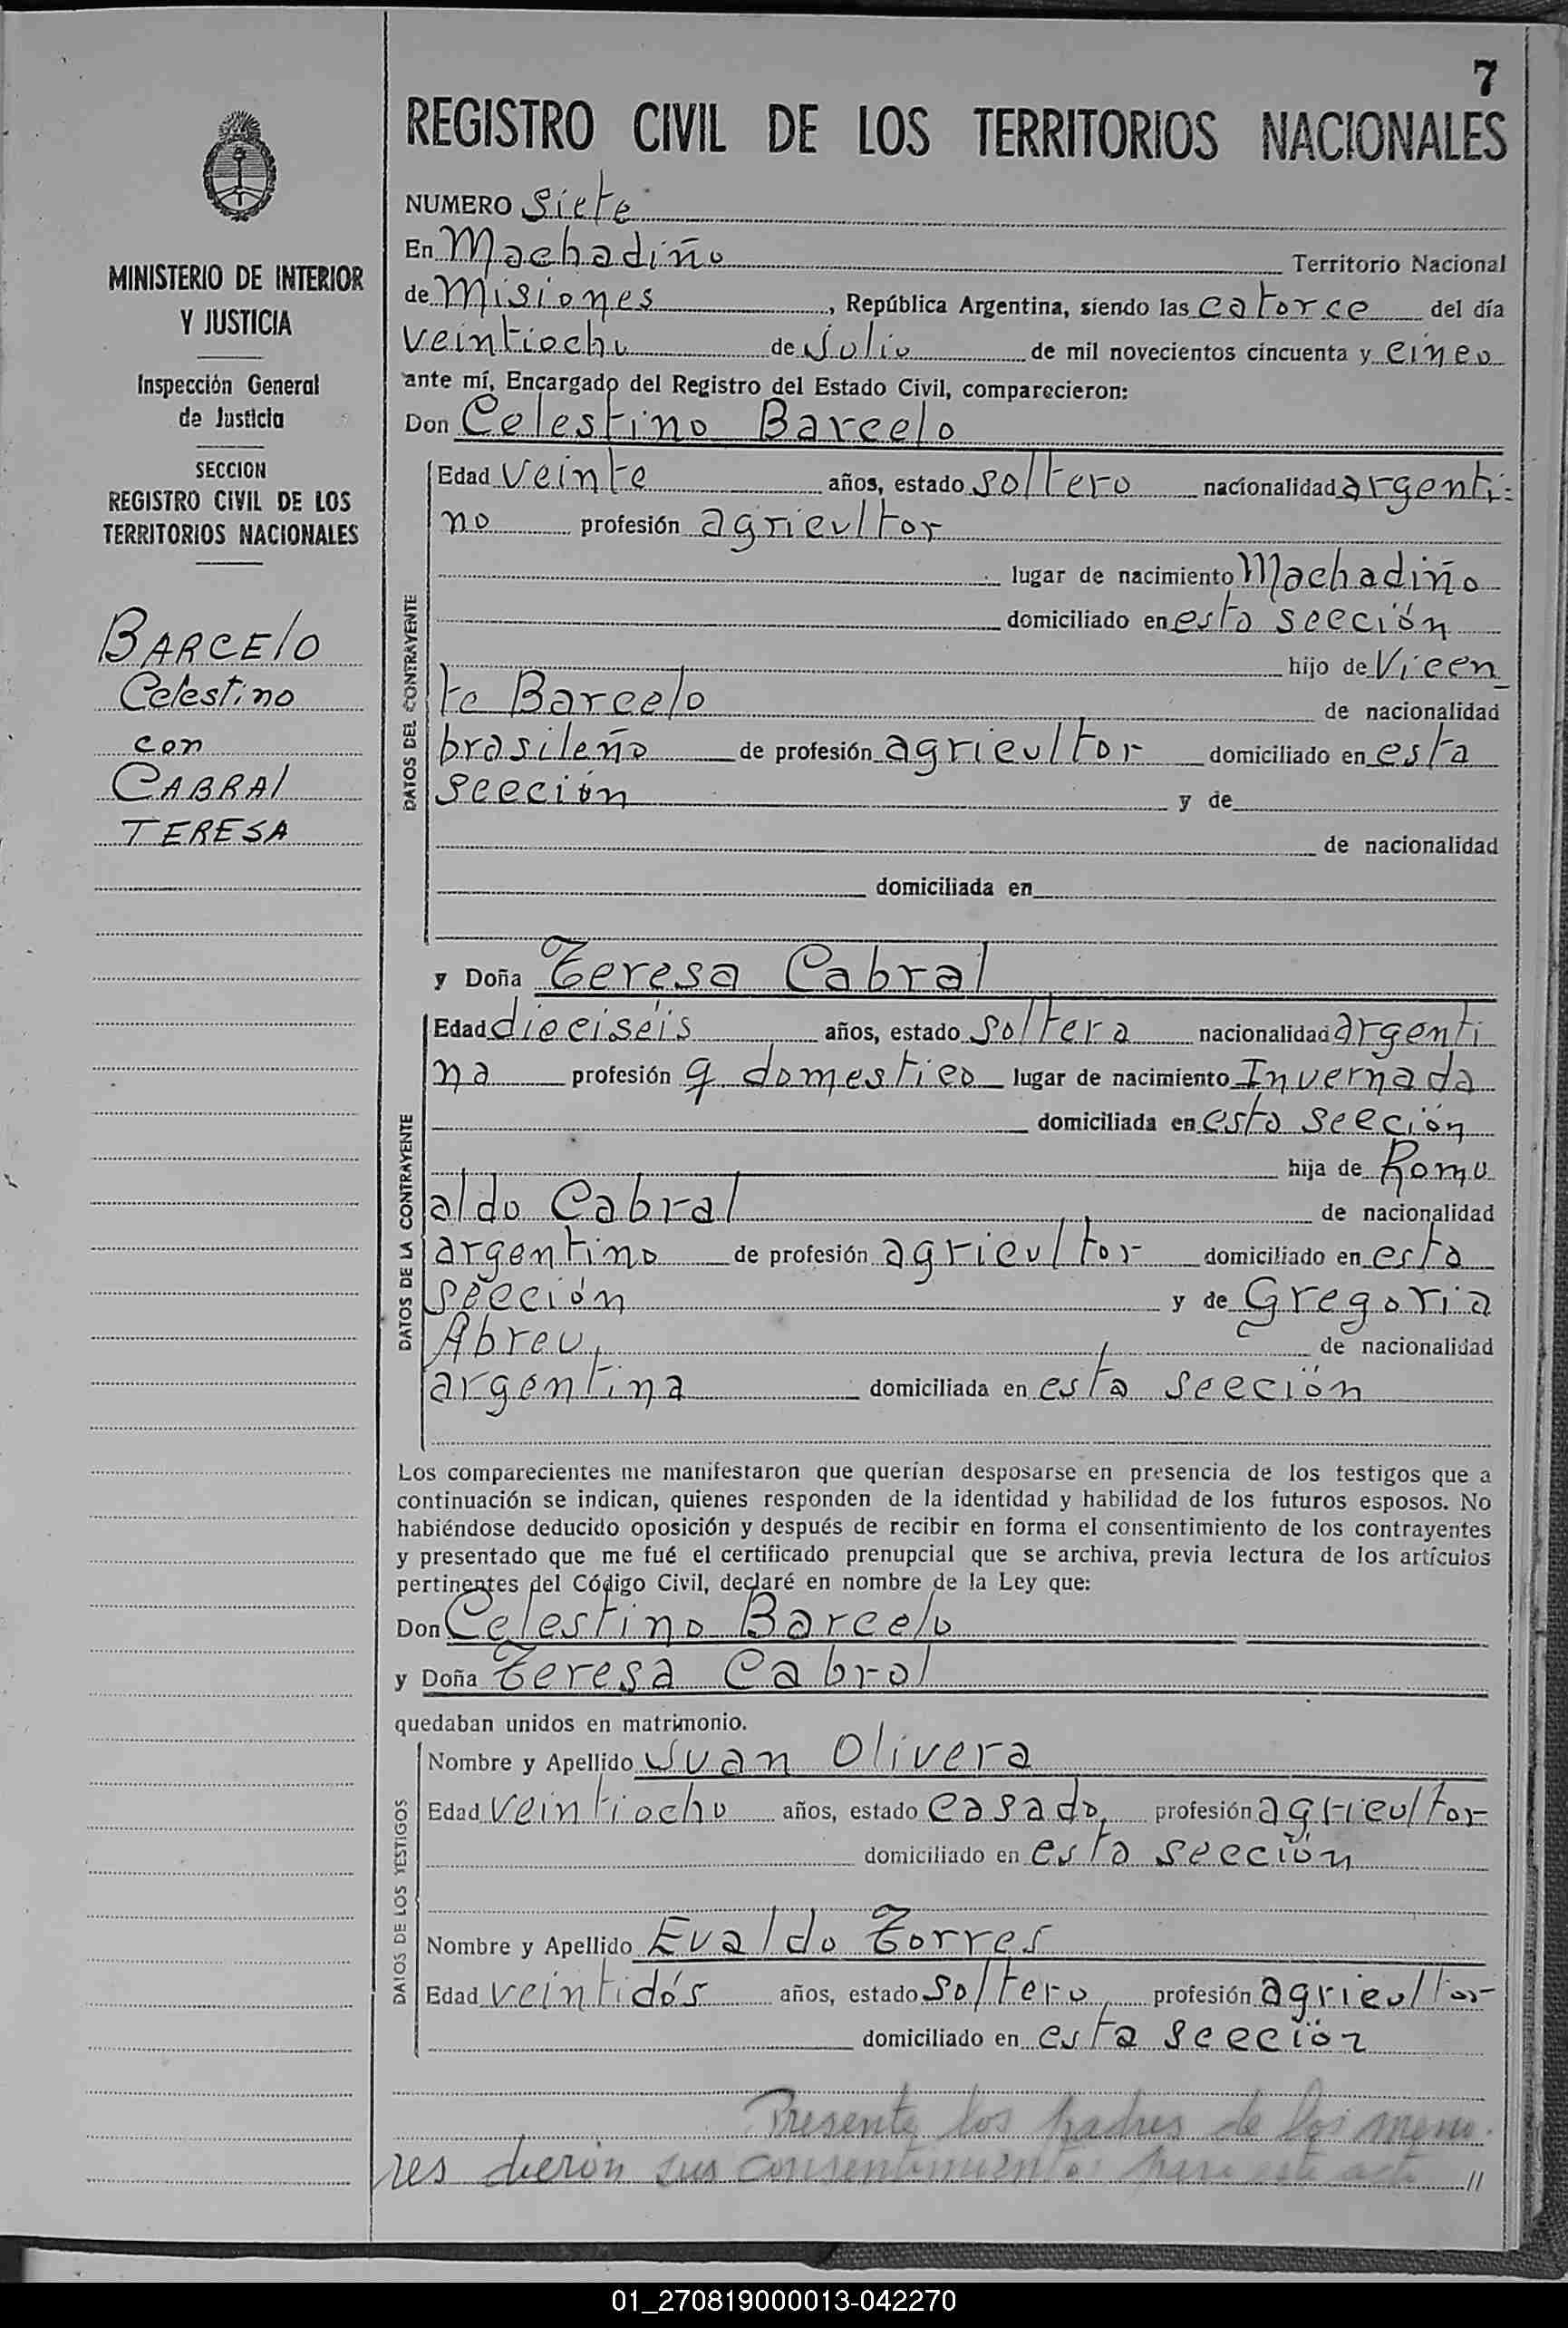 7
REGISTRO CIVIL DE LOS TERRITORIOS NACIONALES
NUMERO Siete
En Machadiño Territorio Nacional
de Misiones, República Argentina, siendo las catorce del día
veintiocho de Julio de mil novecientos cincuenta y cinco
ante mí, Encargado del Registro del Estado Civil, comparecieron:
Don Celestino Barcelo
Edad veinte años, estado soltero nacionalidad argenti=
no profesión agricultor
lugar de nacimiento Machadiño
domiciliado en esta sección
hijo de Vicen_
te Barcelo de nacionalidad
brasileño de profesión agricultor domiciliado en esta
sección y de
de nacionalidad
domiciliada en
y Doña Teresa Cabral
Edad dieciséis años, estado soltera nacionalidad argenti
na profesión q. domestico lugar de nacimiento Invernada
domiciliada en esta sección
hija de Romu
aldo Cabral de nacionalidad
argentino de profesión agricultor domiciliado en esta
sección y de Gregoria
Abreu, de nacionalidad
argentina domiciliada en esta sección
Los comparecientes me manifestaron que querían desposarse en presencia de los testigos que a
continuación se indican, quienes responden de la identidad y habilidad de los futuros esposos. No
habiéndose deducido oposición y después de recibir en forma el consentimiento de los contrayentes
y presentado que me fué el certificado prenupcial que se archiva, previa lectura de los artículos
pertinentes del Código Civil, declaré en nombre de la Ley que:
Don Celestino Barcelo
y Doña Teresa Cabral
quedaban unidos en matrimonio.
Nombre y Apellido Juan Olivera
Edad veintiocho años, estado casado, profesión agricultor
domiciliado en esta sección
Nombre y Apellido Evaldo Torres
Edad veintidós años, estado soltero, profesión agricultor
domiciliado en esta sección
Presente los padres de los meno-
res dieron sus consentimientos para este acto //
MINISTERIO DE INTERIOR
Y JUSTICIA
Inspección General
de Justicia
SECCION
REGISTRO CIVIL DE LOS
TERRITORIOS NACIONALES
BARCElO
Celestino
con
CABRAl
TERESA
DATOS DEL CONTRAYENTE
DATOS DE LA CONTRAYENTE
DATOS DE LOS TESTIGOS
01_270819000013-042270